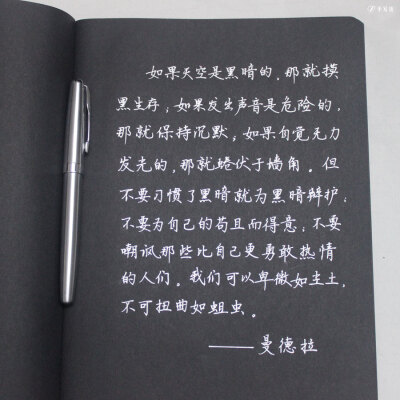 如果天空是黑暗的，那就摸
黑生存；如果发出声音是危险的，
那就保持沉默；如果自觉无力
发光的，那就蜷伏于墙角。但
不要习惯了黑暗就为黑暗辩护；
不要为自己的苟且而得意；不要
嘲讽那些比自己更勇敢热情
的人们。我们可以卑微如尘土，
不可扭曲如蛆虫。
——曼德拉